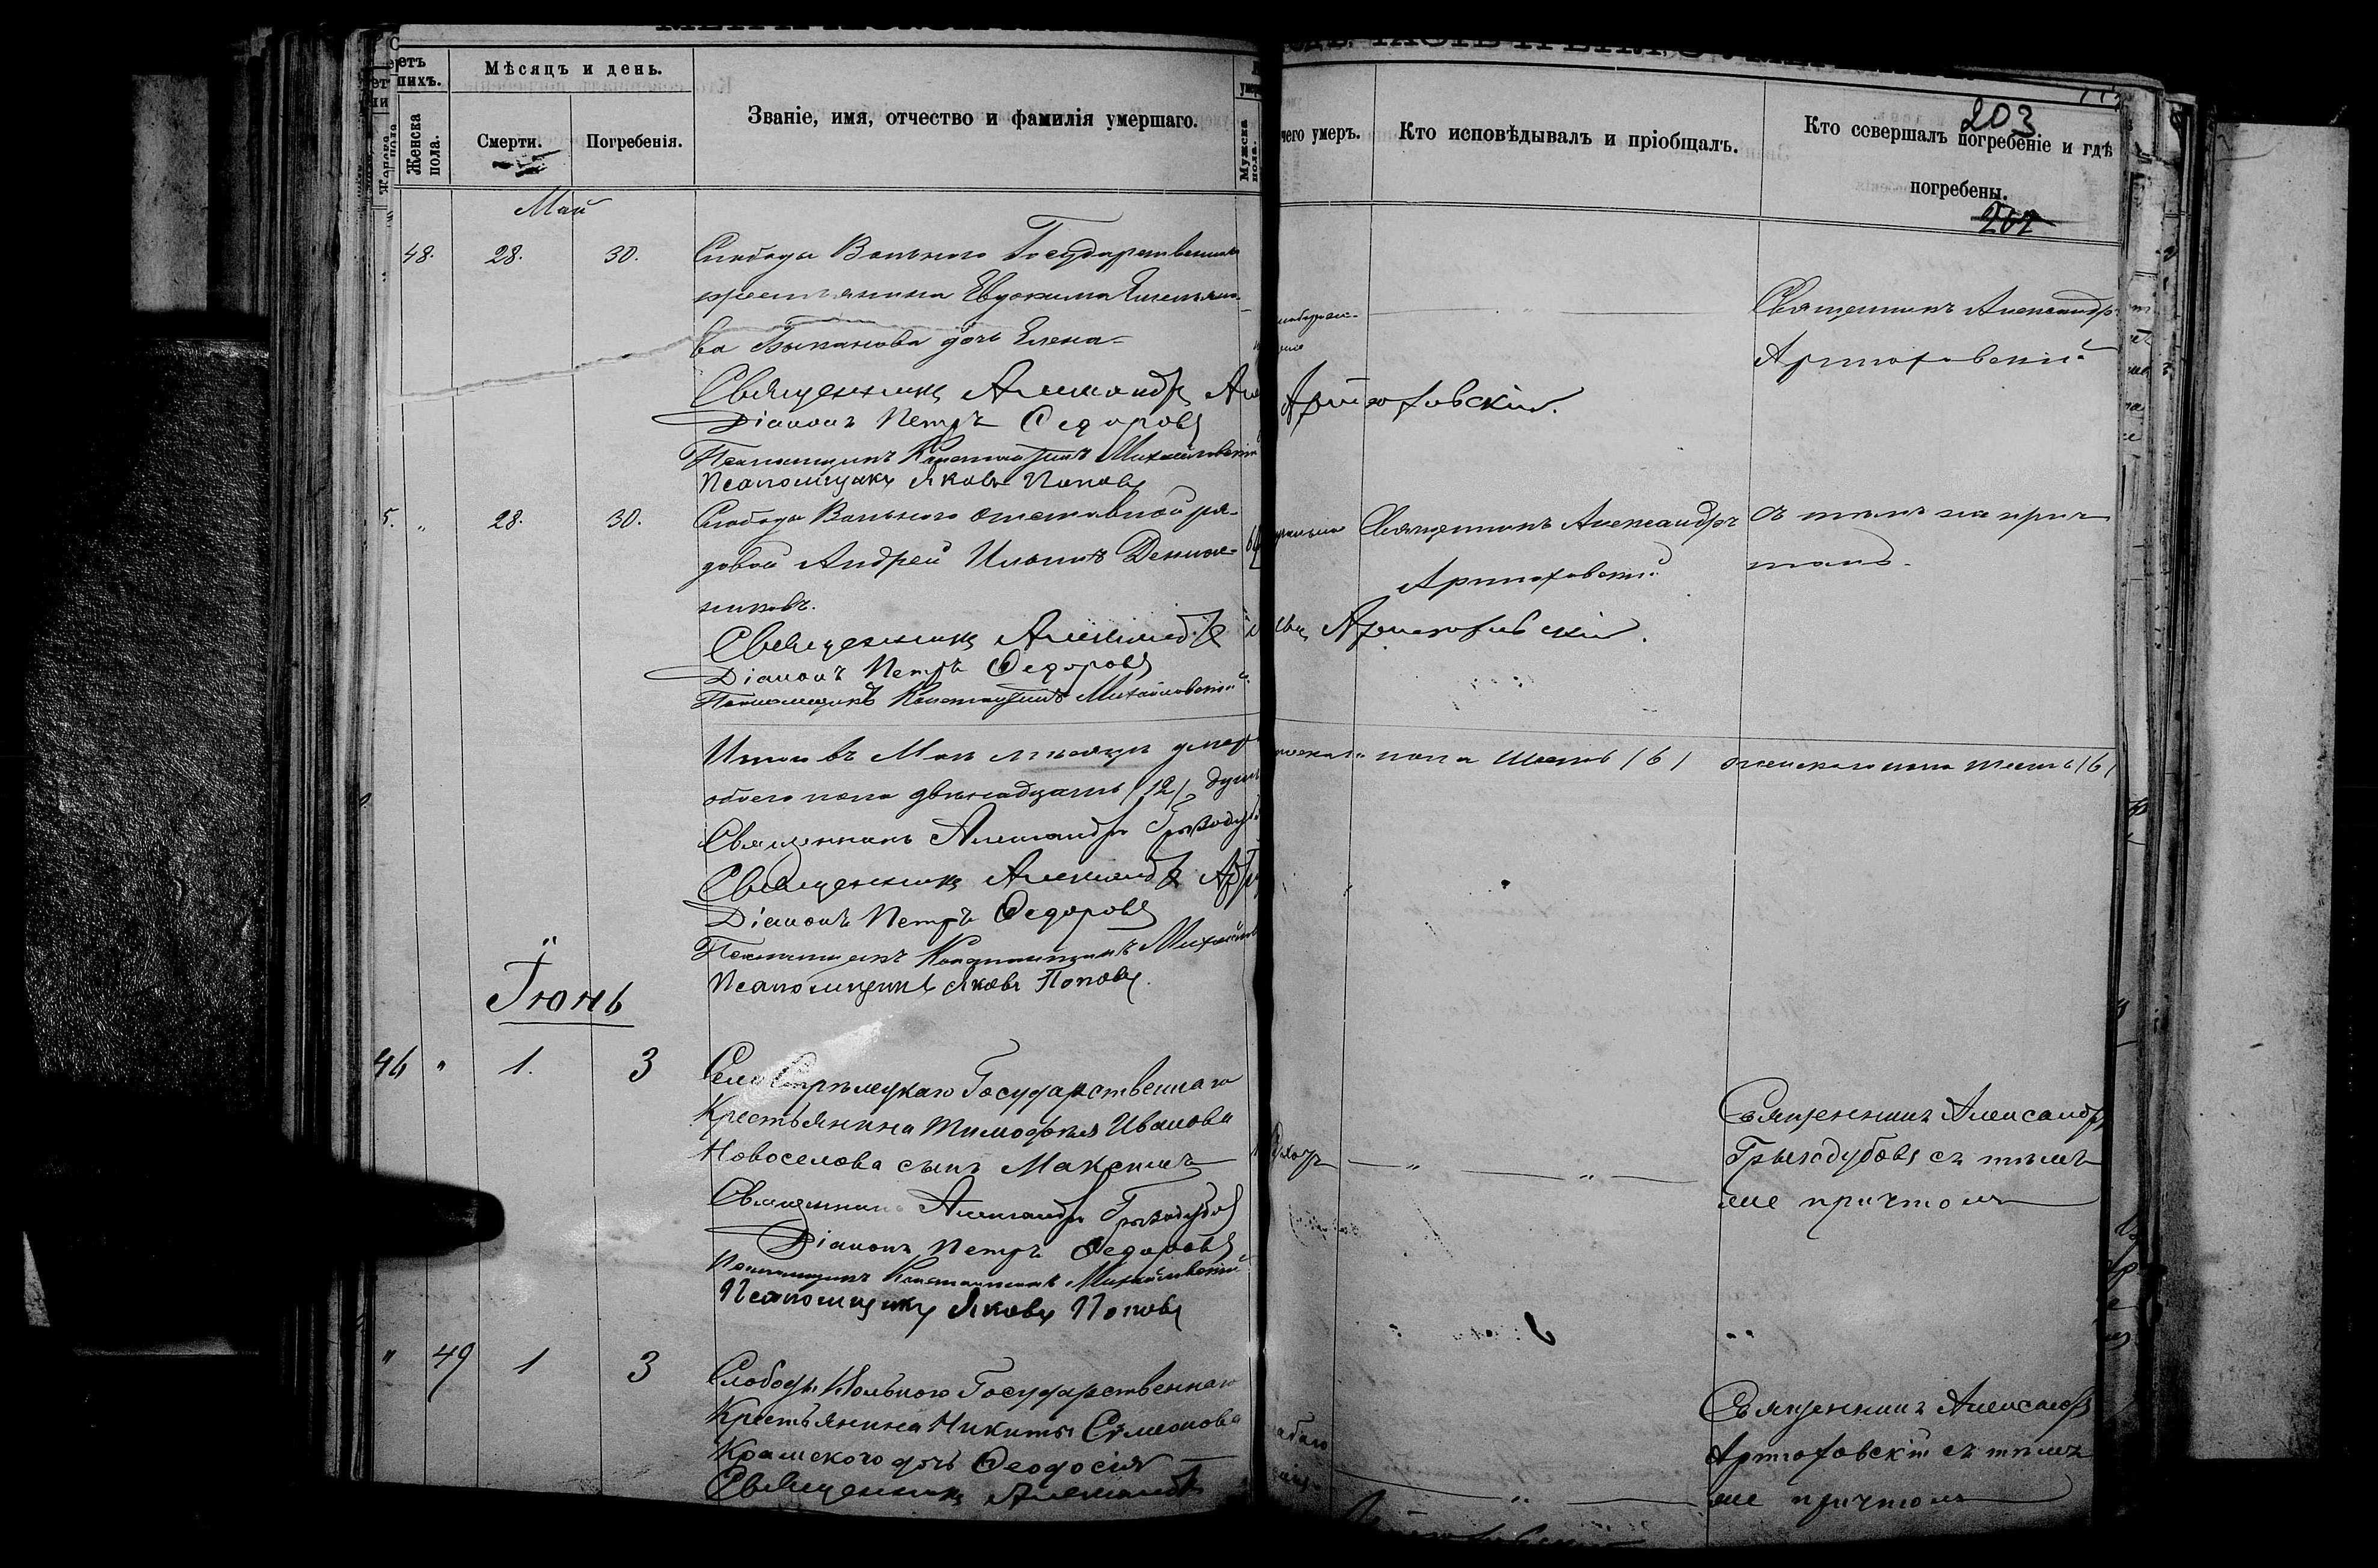 203
Мѣсяцъ и день.
Званіе, имя, отчество и фамилія умершаго.
Женска пола.
Смерти.
Погребенія.
Мужска пола.
чего умеръ.
Кто исповѣдывалъ и пріобщалъ.
Кто совершалъ погребеніе и гдѣ
погребены.
202
Май
48. 28. 30. Слободы Вольного Государственнаго
крестьянина Евдокима Емельяно-
ва дочь Елена
Священникъ Александръ
Артюховскій
Священникъ Александръ Артюховскій.
Діаконъ Петръ Федоровъ
Псаломщикъ Константинъ Михайловскій
Псаломщикъ Яковъ Поповъ
5. " 28. 30. Слободы Вольного отставной ря-
довой Андрей Ильинъ
никовъ.
Священникъ Александръ
Артюховскій
съ тѣмъ же прич-
томъ.
Священникъ Александръ Артюховскій.
Діаконъ Петръ Федоровъ
Псаломщикъ Константинъ Михайловскій
Итого въ Маѣ мѣсяцѣ умерло
пола шесть (6) женскаго пола шесть (6)
обоего пола двѣнадцать (12) душъ
Священникъ Александръ Грызодубовъ
Священникъ Александръ
Діаконъ Петръ Федоровъ
Псаломщикъ Константинъ
Псаломщикъ Яковъ Поповъ.
Іюнь
46 " 1. 3 Села Стрѣлецкаго Государственнаго
Крестьянина Тимофея Иванова
Новоселова сынъ Максимъ
Священникъ Александръ
Грызодубовъ съ тѣмъ
же причтомъ
Священникъ Александръ Грызодубовъ
Діаконъ Петръ Федоровъ
Псаломщикъ Константинъ Михайловскій
Псаломщикъ Яковъ Поповъ
" 49 1 3 Слободы Вольного Государственнаго
Крестьянина Никиты Симеонова
Крамского дочь Феодосія
Священникъ Александръ
Артюховскій съ тѣмъ
же причтомъ
Священникъ Александръ